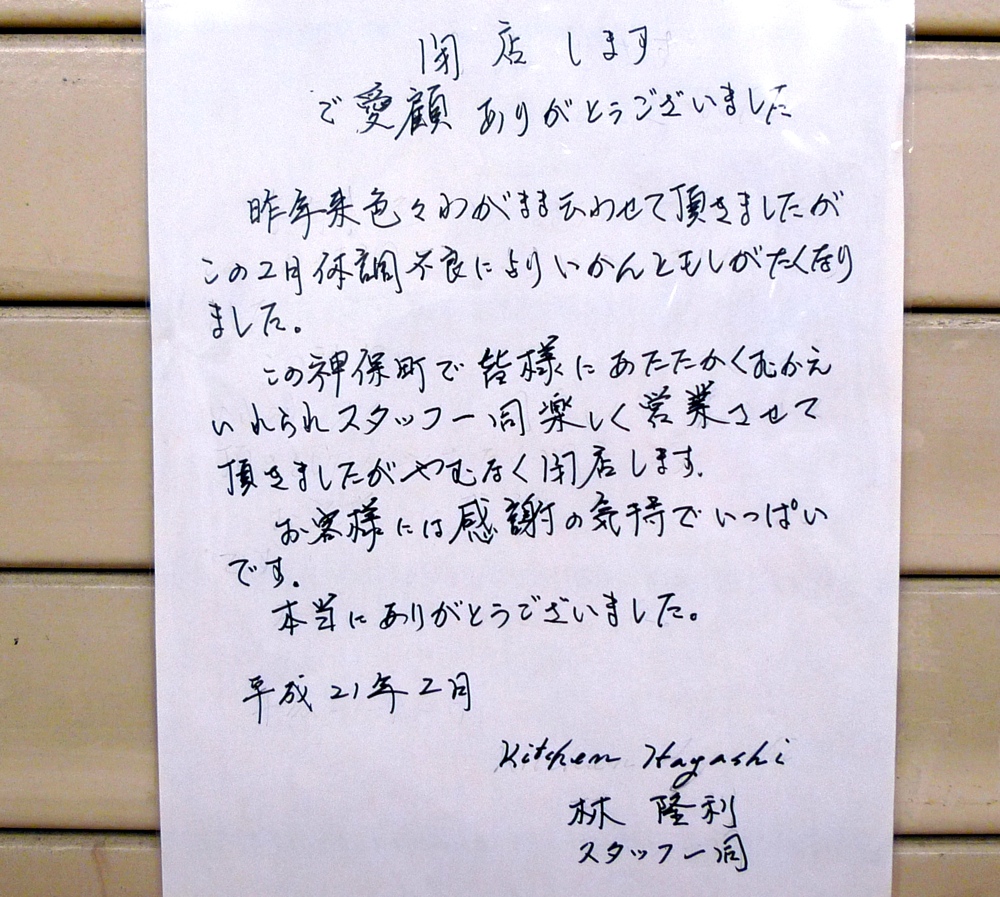 閉店します
ご愛顧ありがとうございました
昨年来色々わがまま云わせて頂きましたが
この2月体調不良によりいかんともしがたくなり
ました。
この神保町で皆様にあたたかくむかえ
いれられスタッフ一同楽しく営業させて
頂きましたがやむなく閉店します.
お客様には感謝の気持でいっぱい
です.
本当にありがとうございました。
平成21年2月
Kitchen Hayashi
林 隆利
スタッフ一同